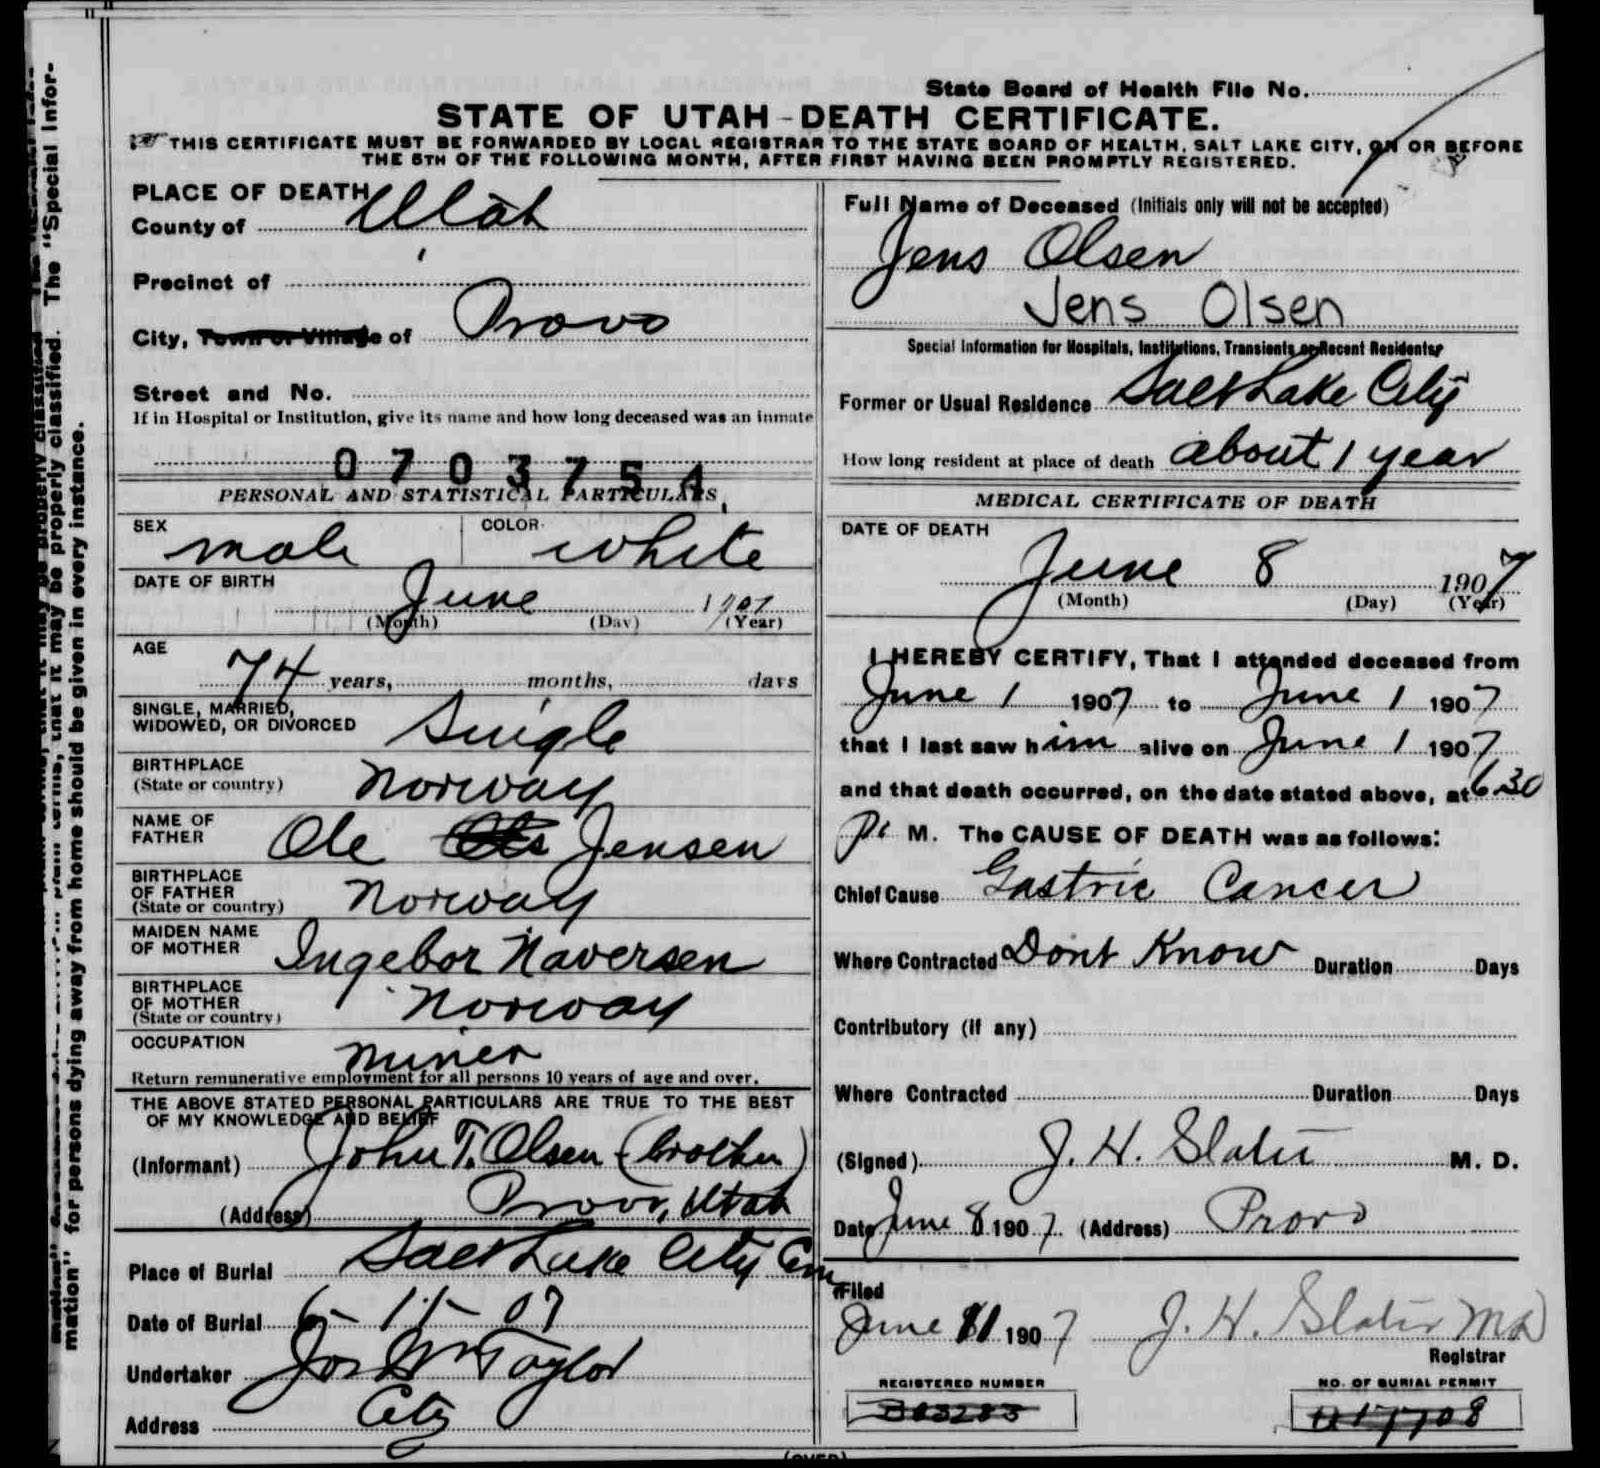 State Board of Health File No.
STATE OF UTAH-DEATH CERTIFICATE.
THIS CERTIFICATE MUST BE FORWARDED BY LOCAL REGISTRAR TO THE STATE BOARD OF HEALTH, SALT LAKE CITY, ON OR BEFORE
THE 5TH OF THE FOLLOWING MONTH, AFTER FIRST HAVING BEEN PROMPTLY REGISTERED.
PLACE OF DEATH
County of Utah
Precinct of
City, Town or Village of Provo
Street and No.
If in Hospital or Institution, give its name and how long deceased was an inmate
0703754
PERSONAL AND STATISTICAL PARTICULARS,
SEX male COLOR white
DATE OF BIRTH June
(Month) (Day) (Year)
AGE
74 years, months, days
SINGLE, MARRIED,
WIDOWED, OR DIVORCED Single
BIRTHPLACE
(State or country) Norway
NAME OF
FATHER Ole Jensen
BIRTHPLACE
OF FATHER
(State or country) Norway
MAIDEN NAME
OF MOTHER Ingebor Naversen
BIRTHPLACE
OF MOTHER
(State or country) Norway
OCCUPATION miner
Return remunerative employment for all persons 10 years of age and over.
THE ABOVE STATED PERSONAL PARTICULARS ARE TRUE TO THE BEST
OF MY KNOWLEDGE AND BELIEF
(Informant) John T. Olsen (brother)
(Address) Provo, Utah
Place of Burial Salt Lake City Cem
Date of Burial 6-11-07
Undertaker Jos Wm Taylor
Address City
Full Name of Deceased (Initials only will not be accepted)
Jens Olsen
Jens Olsen
Special Information for Hospitals, Institutions, Transients or Recent Residents
Former or Usual Residence Salt Lake City
How long resident at place of death about 1 year
MEDICAL CERTIFICATE OF DEATH
DATE OF DEATH
June 8 1907
(Month) (Day) (Year)
I HEREBY CERTIFY, That I attended deceased from
June 1 1907 to June 1 1907
that I last saw him alive on June 1 1907
and that death occurred, on the date stated above, at 6 30
P. M. The CAUSE OF DEATH was as follows:
Chief Cause Gastric Cancer
Where Contracted Dont Know Duration Days
Contributory (if any)
Where Contracted Duration Days
(Signed) J. H. Slater M. D.
Date June 8 1907 (Address) Provo
Filed
June 11 1907 J. H. Slater MD
Registrar
REGISTERED NUMBER
NO. OF BURIAL PERMIT
(OVER)
The "Special Infor-
that it may be properly classified.
mation" for persons dying away from home should be given in every instance.